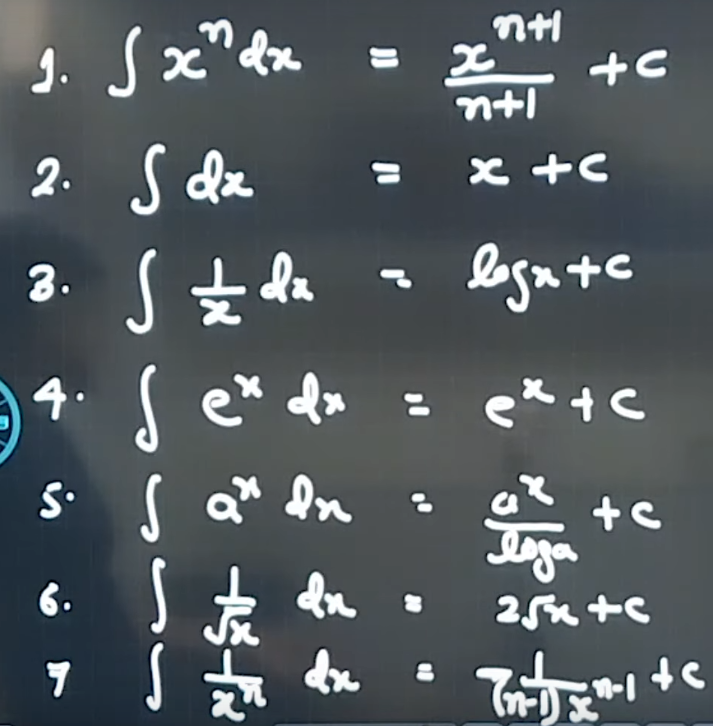 1. ∫ xⁿ dx = xⁿ⁺¹/(n+1) + c
2. ∫ dx = x + c
3. ∫ 1/x dx = log x + c
4. ∫ eˣ dx = eˣ + c
5. ∫ aˣ dx = aˣ/log a + c
6. ∫ 1/√x dx = 2√x + c
7 ∫ 1/xⁿ dx = 7 1/((n-1) xⁿ⁻¹) + c